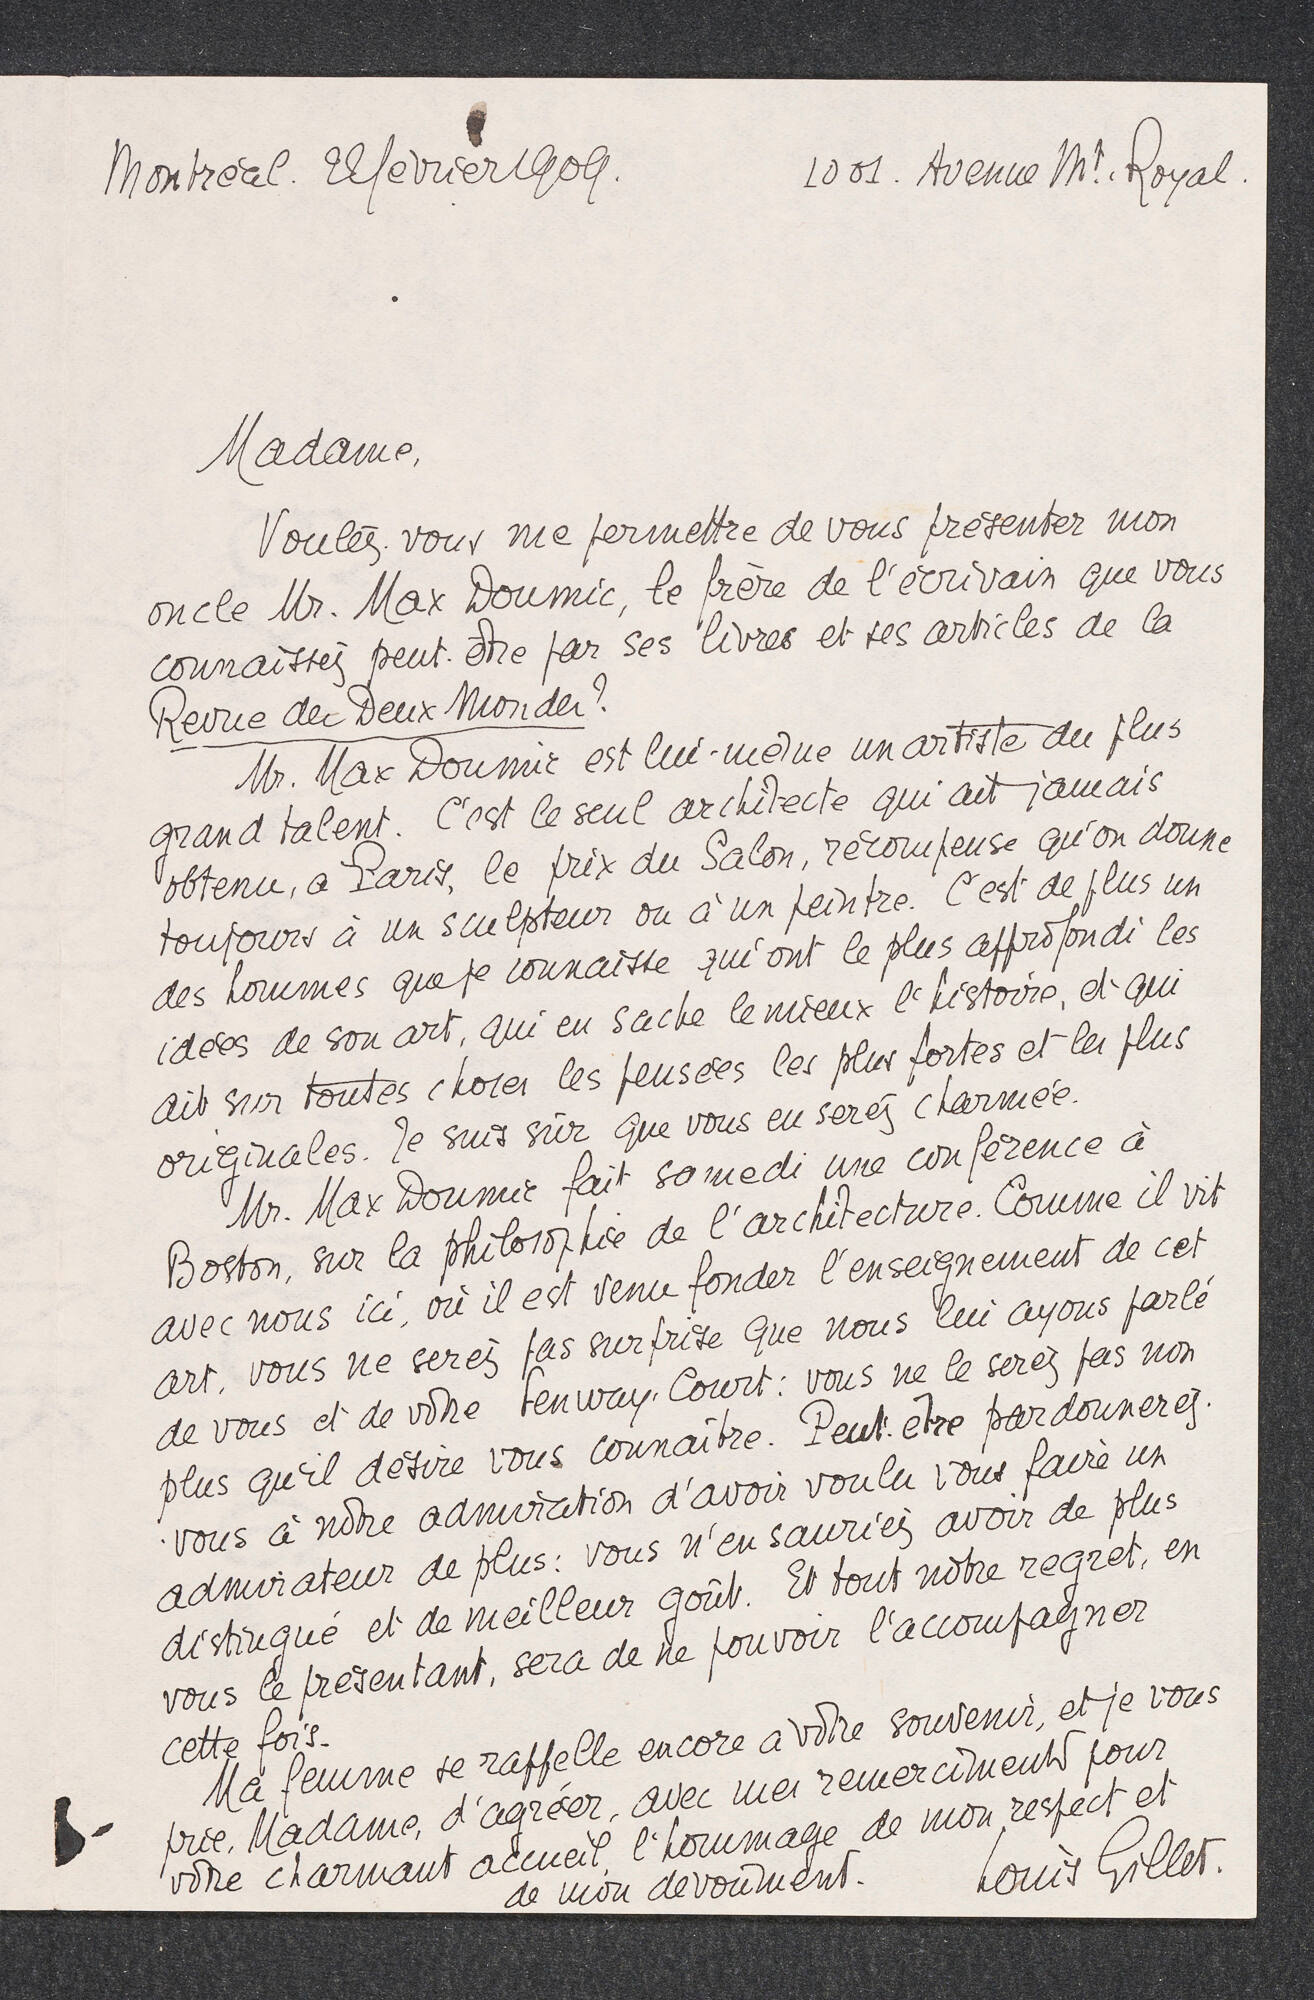 Montréal. 22 février 1909.
1001. Avenue Mt. Royal.
Madame,
Voulez-vous me permettre de vous présenter mon
oncle Mr. Max Doumic, le frère de l'écrivain que vous
connaissez peut-être par ses livres et ses articles de la
Revue des Deux Mondes?
Mr. Max Doumic est lui-même un artiste du plus
grand talent. C'est le seul architecte qui ait jamais
obtenu, a Paris, le prix du Salon, récompense qu'on donne
toujours à un sculpteur ou à un peintre. C'est de plus un
des hommes que je connaisse qui ont le plus approfondi les
idées de son art, qui en sache le mieux l'histoire, et qui
ait sur toutes choses les pensées les plus fortes et les plus
originales. Je suis sûr que vous en serez charmée.
Mr. Max Doumic fait samedi une conférence à
Boston, sur la philosophie de l'architecture. Comme il vit
avec nous ici, où il est venu fonder l'enseignement de cet
art, vous ne serez pas surprise que nous lui ayons parlé
de vous et de vôtre Fenway-Court: vous ne le serez pas non
plus qu'il désire vous connaître. Peut-etre pardonnerez-
-vous à nôtre admiration d'avoir voulu vous faire un
admirateur de plus: vous n'en sauriez avoir de plus
distingué et de meilleur goût. Et tout nôtre regret, en
vous le présentant, sera de ne pouvoir l'accompagner
cette fois-
Ma femme se rappelle encore a vôtre souvenir, et je vous
prie, Madame, d'agréer, avec mes remerciments pour
vôtre charmant accueil, l'hommage de mon respect et
de mon dévoûment.
Louis Gillet.